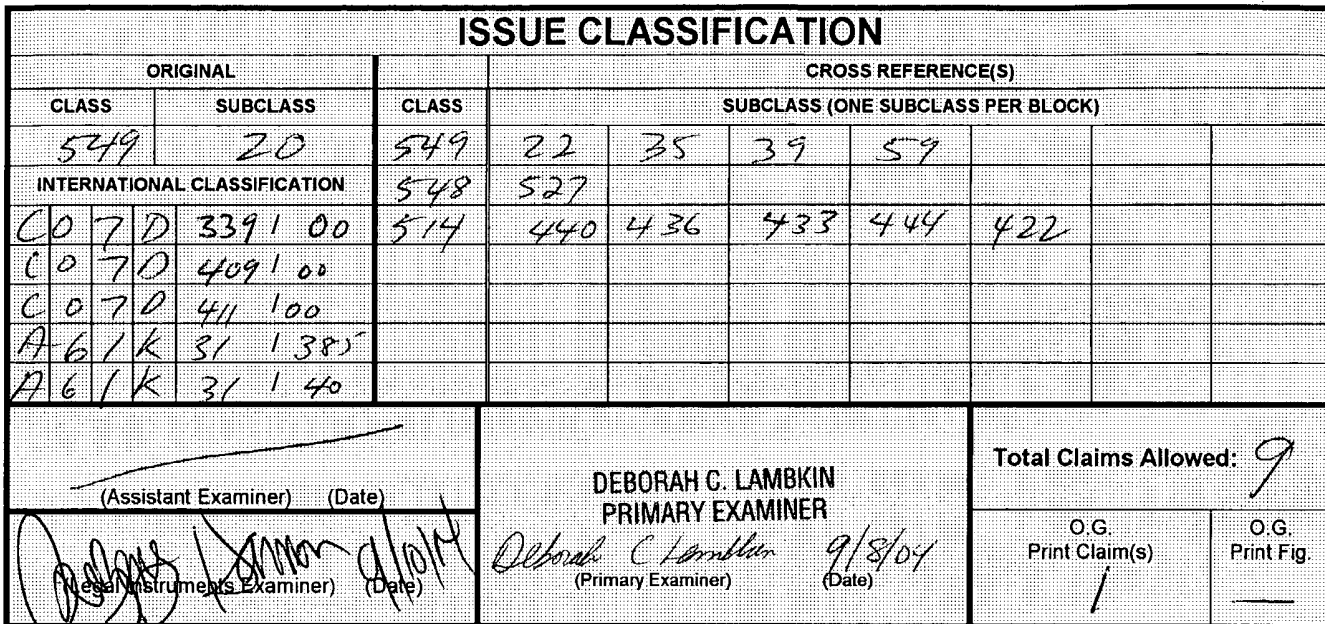 ISSUE CLASSIFICATION
ORIGINAL CROSS REFERENCE(S)
CLASS SUBCLASS CLASS SUBCLASS (ONE SUBCLASS PER BLOCK)
549 20 549 22 35 39 59
INTERNATIONAL CLASSIFICATION 548 527
C 0 7 D 339 / 00 514 440 436 433 444 422
C 0 7 D 409 / 00
C 0 7 D 411 / 00
A 6 1 K 31 / 385
A 6 1 K 31 / 40
(Assistant Examiner) (Date)
DEBORAH C. LAMBKIN
PRIMARY EXAMINER
Deborah C Lambkin 9/8/04
(Primary Examiner) (Date)
Total Claims Allowed: 9
(Legal Instruments Examiner) (Date)
O.G.
Print Claim(s)
1
O.G.
Print Fig.
—